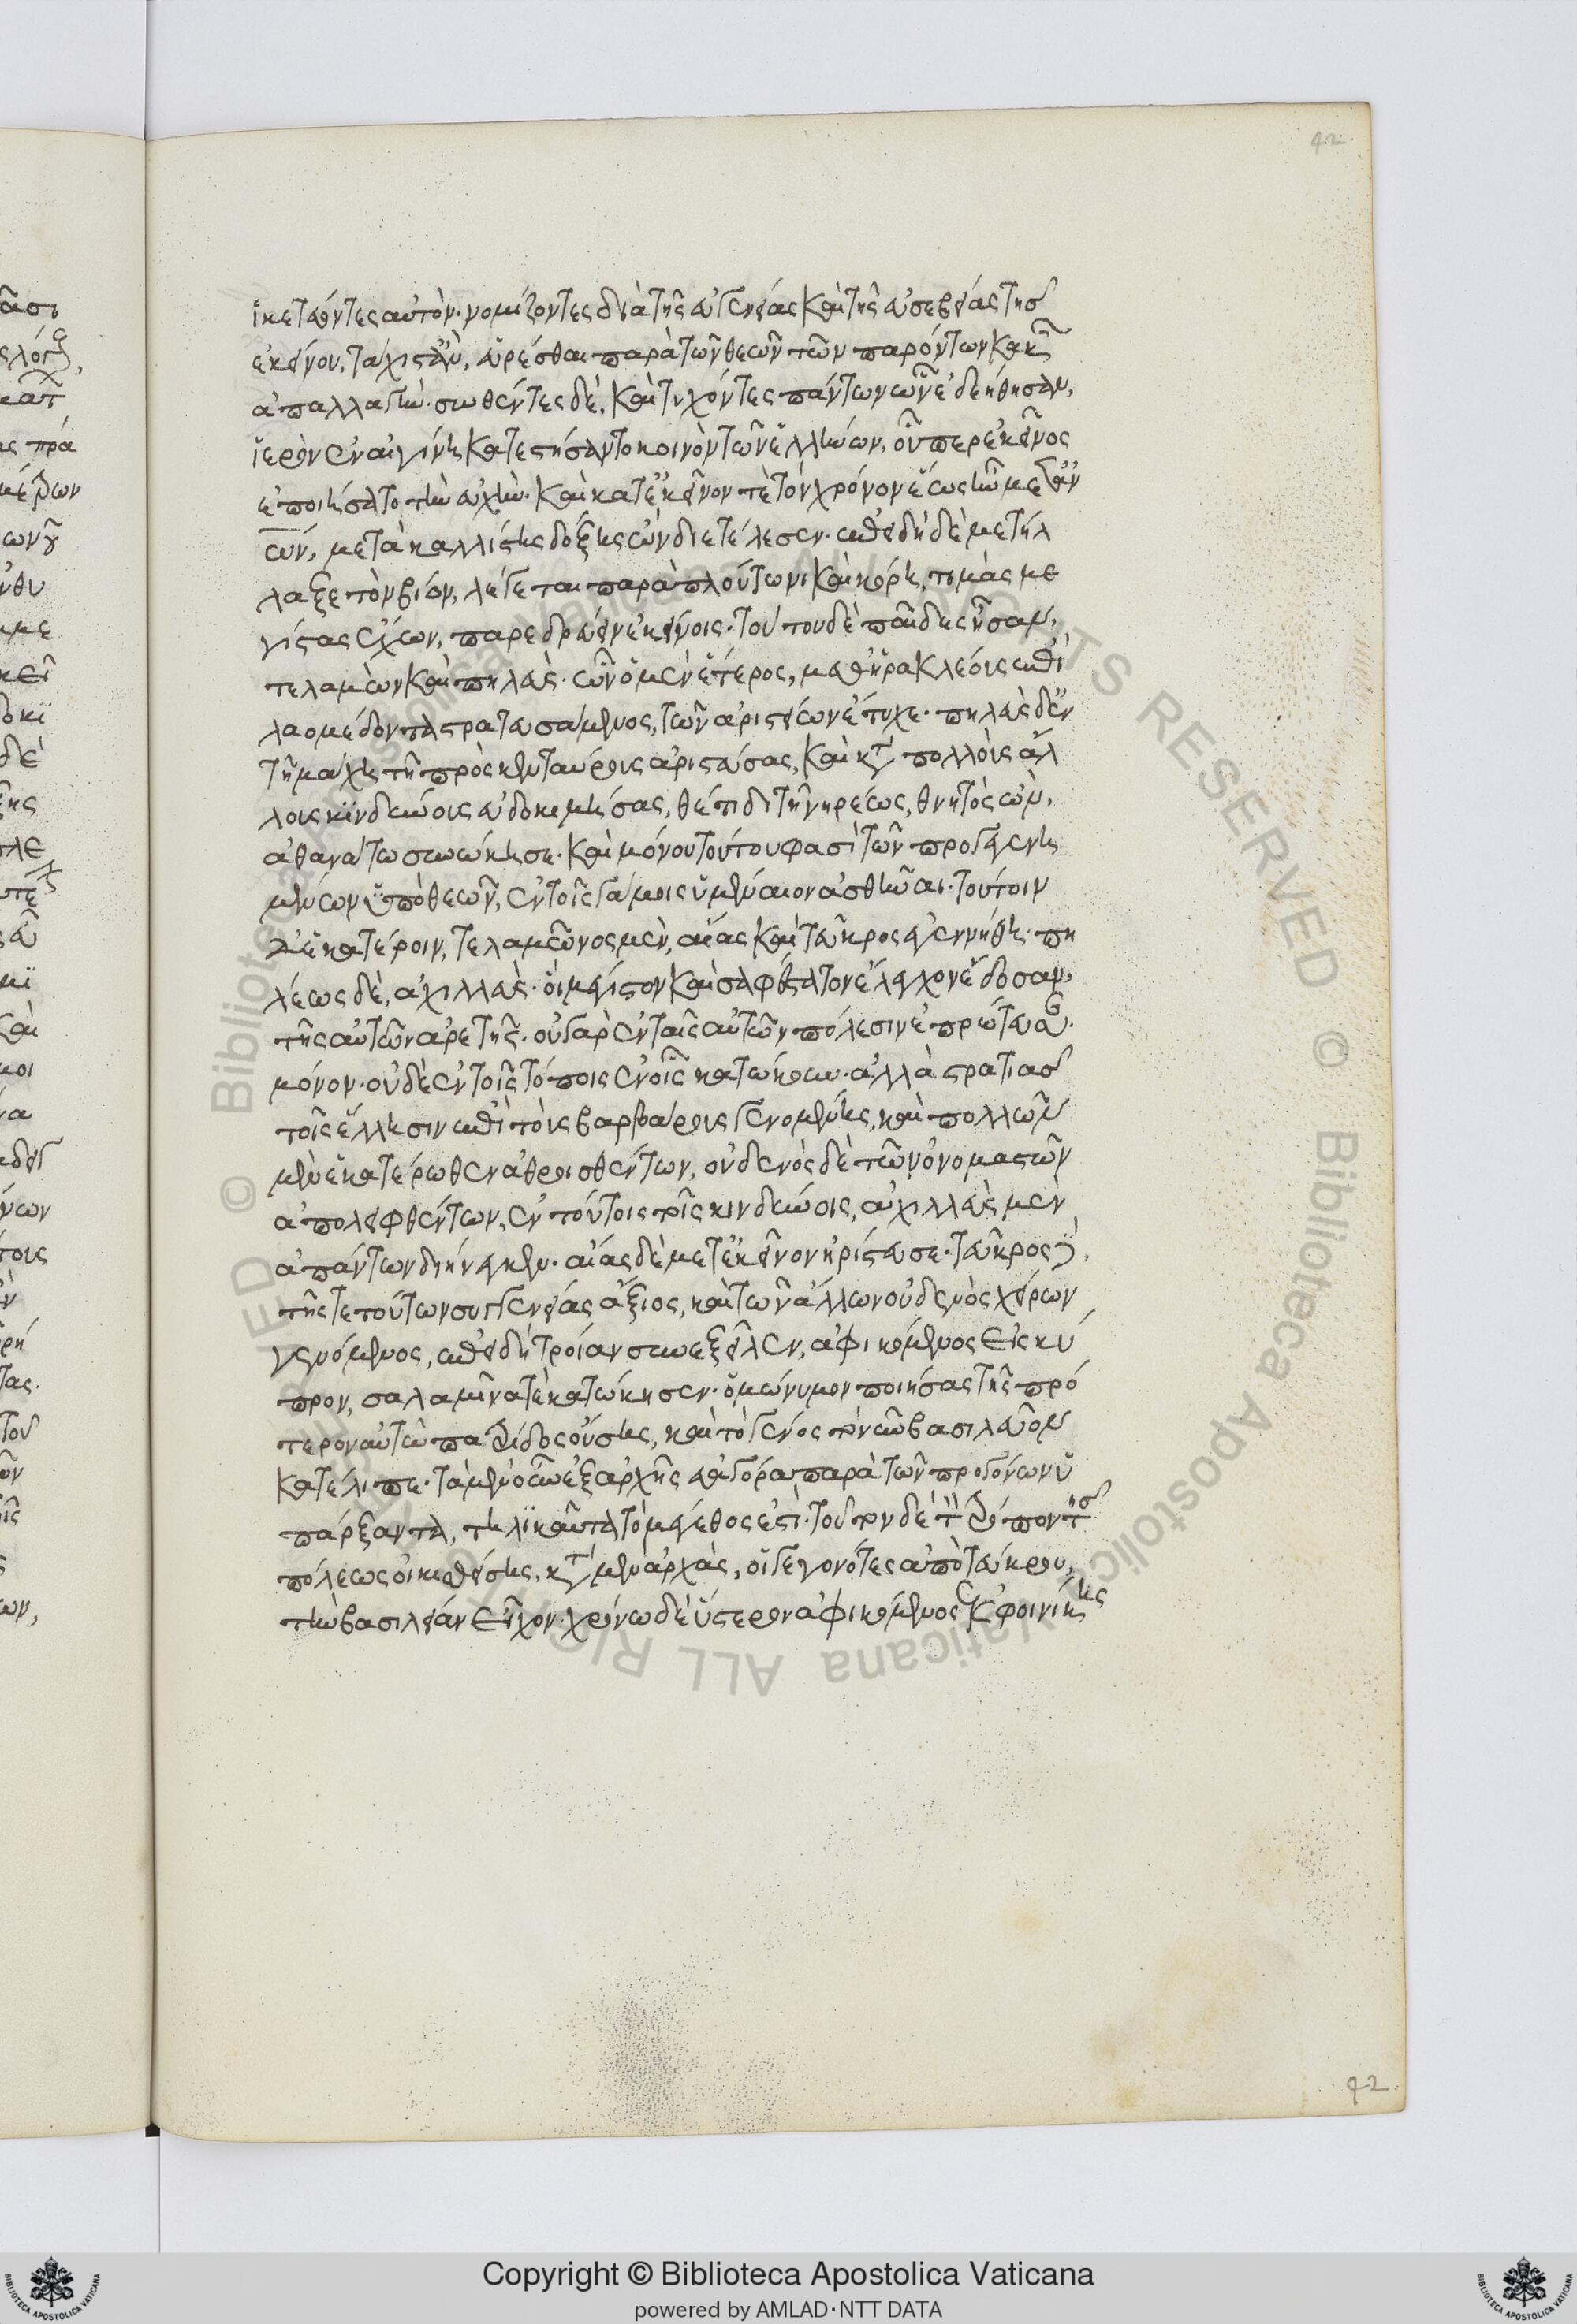 42
ἱκετεύοντες αὐτὸν· νομίζοντες διὰ τῆς εὐγενείας καὶ τῆς εὐσεβείας τῆς
ἐκείνου, τάχιστ' ἂν, εὑρέσθαι παρὰ τῶν θεῶν τῶν παρόντων κακῶν
ἀπαλλαγήν· σωθέντες δὲ, καὶ τυχόντες πάντων ὧν ἐδεήθησαν,
ἱερὸν ἐν αἰγίνῃ κατεστήσαντο κοινὸν τῶν ἑλλήνων, οὗπερ ἐκεῖνος
ἐποιήσατο τὴν εὐχήν· καὶ κατ' ἐκεῖνόν τε τὸν χρόνον ἕως ἦν μετ' αὐ
τῶν, μετὰ καλλίστης δόξης ὢν διετέλεσεν· ἐπειδὴ δὲ μετήλ
λαξε τὸν βίον, λέγεται παρὰ πλούτωνι καὶ κόρῃ, τιμὰς με
γίστας ἔχων, παρεδρεύειν ἐκείνοις· τούτου δὲ παῖδες ἦσαν,
τελαμὼν καὶ πηλεύς· ὧν ὁ μὲν ἕτερος, μεθ' ἡρακλέους ἐπὶ
λαομέδοντα στρατευσάμενος, τῶν ἀριστείων ἔτυχε· πηλεὺς δ' ἐν
τῇ μάχῃ τῇ πρὸς κενταύρους ἀριστεύσας, καὶ κατὰ πολλοὺς ἄλ
λους κινδύνους εὐδοκιμήσας, θέτιδι τῇ νηρέως, θνητὸς ὢν,
ἀθανάτῳ συνῴκησε· καὶ μόνου τούτου φασὶ τῶν προγεγενη
μένων ὑπὸ θεῶν, ἐν τοῖς γάμοις ὑμέναιον ἀσθῆναι· τούτοιν
δ' ἑκατέροιν, τελαμῶνος μὲν, αἴας καὶ τεῦκρος ἐγεννήθη· πη
λέως δὲ, ἀχιλλεύς· οἳ μέγιστον καὶ σαφέστατον ἔλεγχον ἔδοσαν,
τῆς αὑτῶν ἀρετῆς· οὐ γὰρ ἐν ταῖς αὑτῶν πόλεσιν ἐπρώτευσαν
μόνον· οὐδὲ ἐν τοῖς τόποις ἐν οἷς κατῴκουν· ἀλλὰ στρατιᾶς
τοῖς ἕλλησιν ἐπὶ τοὺς βαρβάρους γενομένης, καὶ πολλῶν
μὲν ἑκατέρωθεν ἀθροισθέντων, οὐδενὸς δὲ τῶν ὀνομαστῶν
ἀπολειφθέντων, ἐν τούτοις τοῖς κινδύνοις, ἀχιλλεὺς μὲν
ἁπάντων διήνεγκεν· αἴας δὲ μετ' ἐκεῖνον ἠρίστευσε· τεῦκρος δὲ,
τῆς τε τούτων συγγενείας ἄξιος, καὶ τῶν ἄλλων οὐδενὸς χείρων
γενόμενος, ἐπειδὴ τροίαν συνεξεῖλεν, ἀφικόμενος εἰς κύ
προν, σαλαμῖνά τε κατῴκησεν· ὁμώνυμον ποιήσας τῆς πρό
τερον αὐτῷ πατρίδος οὔσης, καὶ τὸ γένος τὸ νῦν βασιλεῦον
κατέλιπε· τὰ μὲν οὖν ἐξ ἀρχῆς εὐαγόρᾳ παρὰ τῶν προγόνων ὑ
πάρξαντα, τηλικαῦτα τὸ μέγεθός ἐστι· τοῦτον δὲ τὸν τρόπον τῆς
πόλεως οἰκισθείσης, κατὰ μὲν ἀρχὰς, οἱ γεγονότες ἀπὸ τεύκρου,
τὴν βασιλείαν εἶχον· χρόνῳ δὲ ὕστερον ἀφικόμενος ἐκ φοινίκης
42
Copyright © Biblioteca Apostolica Vaticana
powered by AMLAD·NTT DATA